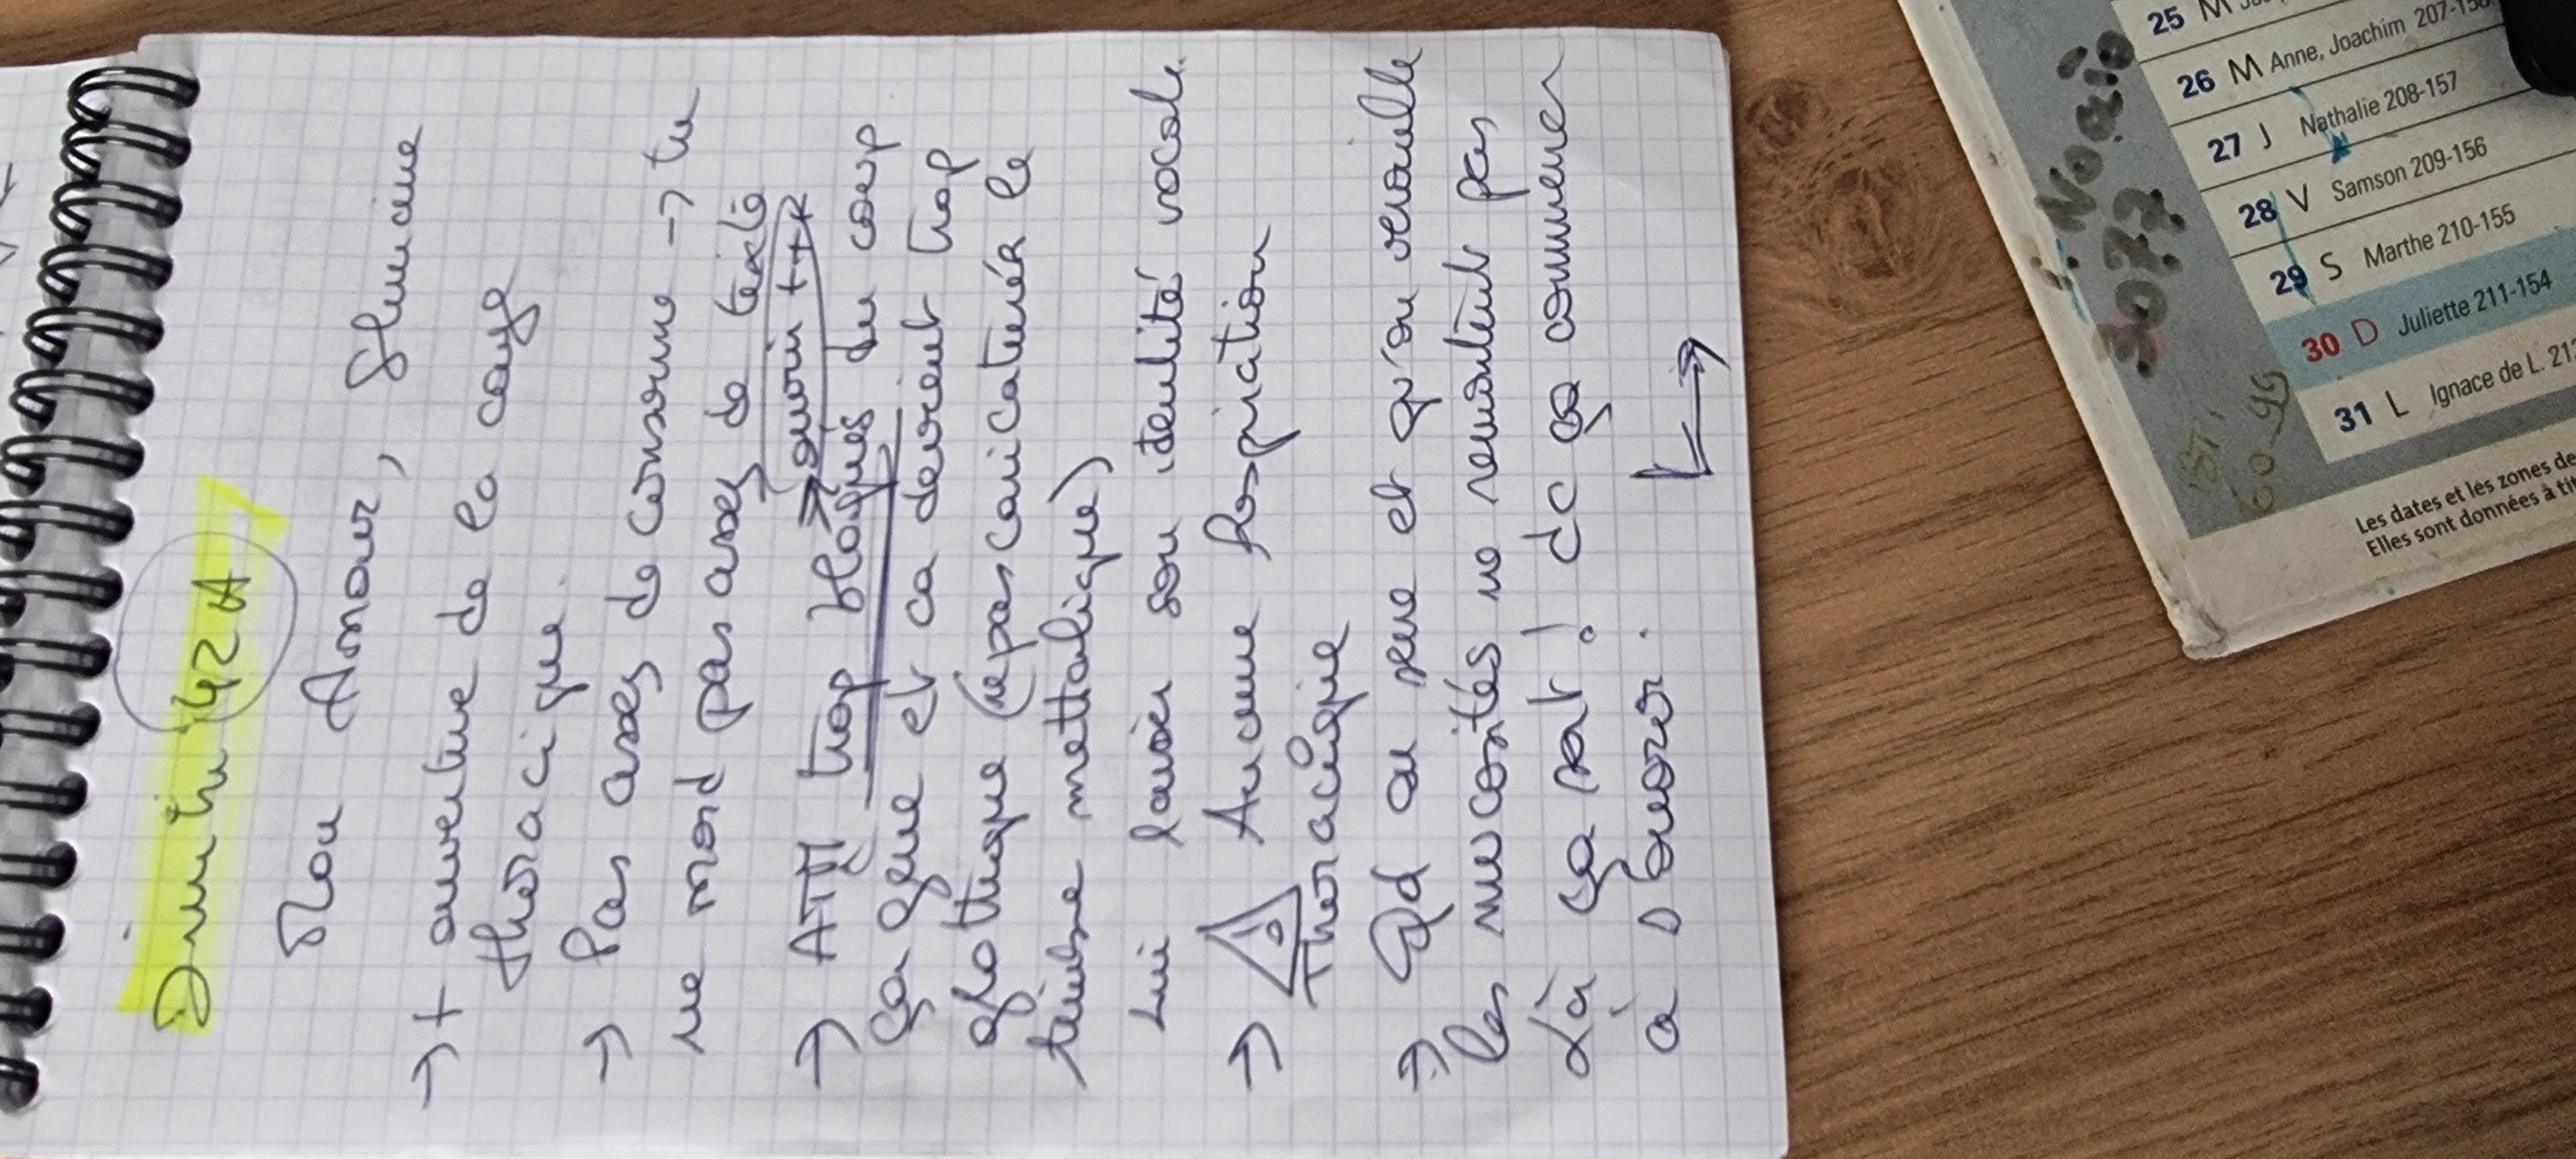 Dimitri 42 A
Mon Amour,
→ + ouverture de la cage
thoracique.
→ Pas assez de consonne → tu
ne mord pas assez de texte
→ ouvrir +++
→ ATM trop bloqués du coup
ça gene et ca devient trop
glottique (ne pas caricaturér le
timbre mettalique)
Lui laisser son identité vocale.
→ ! Aucune Respiration
Thoracique
→ Qd on sene et qu'on verouille
les mucosités ne remontent pas
Là ça sort ! dc ça commence
à s'ouvrir.
25 M
26 M Anne, Joachim 207-158
27 J Nathalie 208-157
28 V Samson 209-156
29 S Marthe 210-155
30 D Juliette 211-154
31 L Ignace de L. 212
Les dates et les zones de
Elles sont données à tit